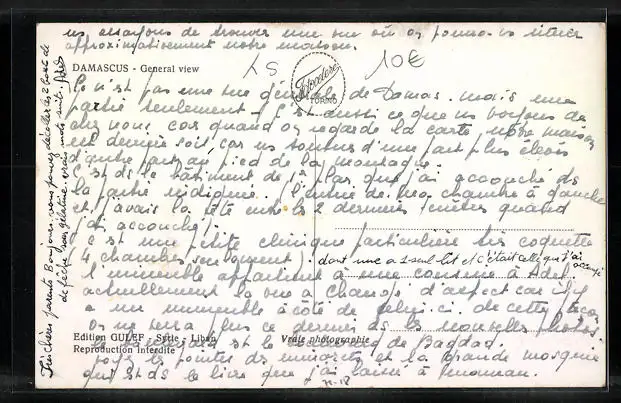 nous essayons de trouver une vue où on pourra situer
approximativement notre maison.
DAMASCUS - General view
LS
10€
Fotocelere
TORINO
Ce n'est pas une vue générale de Damas. mais une
partie seulement. C'est aussi ce que ns voyons de
chez nous, car quand on regarde la carte, notre maison
est derrière soit, car ns sommes d'une part plus élevés
d'autre part au pied de la montagne.
C'est ds le bâtiment de 1er plan que j'ai accouché ds
la partie
à gauche
et j'avais la tête entre les 2 dernières fenêtres quand
j'ai accouché).
C'est une petite clinique particulière très coquette
(4 chambres seulement) dont une à 1 seul lit et c'était celle que j'ai occupé
l'immeuble appartient à une cousine à Adel.
actuellement la vue a changé d'aspect car il y
a un immeuble à côté de celui-ci. de cette façon
on ne verra plus ce dernier ds les nouvelles photos
Edition GULEF - Syrie - Liban
Vraie photographie
Reproduction interdite
le
est le
de Bagdad.
les pointes des minarets et la grande mosquée
qui est ds le livre que j'ai laissé à maman.
71-18
Très chers parents Bonjour. vous pouvez décoller les 2 bouts de